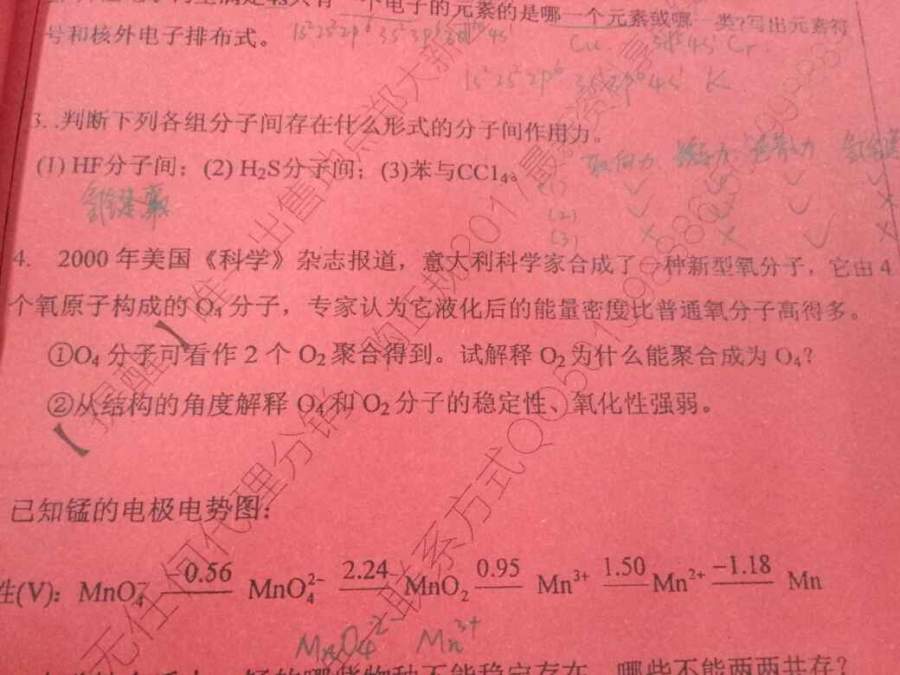 一个电子的元素的是哪一个元素或哪一类?写出元素符
号和核外电子排布式。
Cu Cr
1s²2s²2p⁶ 3s²3p⁶4s¹ K
3. 判断下列各组分子间存在什么形式的分子间作用力。
(1) HF分子间; (2) H₂S分子间; (3)苯与CCl₄。
取向力 诱导力 色散力 氢键
(1) ✓ ✓ ✓ ✓
(2) ✓ ✓ ✓ ×
(3) × × ✓ ×
4. 2000 年美国《科学》杂志报道,意大利科学家合成了一种新型氧分子,它由 4
个氧原子构成的 O₄ 分子,专家认为它液化后的能量密度比普通氧分子高得多。
①O₄ 分子可看作 2 个 O₂ 聚合得到。试解释 O₂ 为什么能聚合成为 O₄?
②从结构的角度解释 O₄ 和 O₂ 分子的稳定性、氧化性强弱。
已知锰的电极电势图:
性(V): MnO₄⁻ 0.56 MnO₄²⁻ 2.24 MnO₂ 0.95 Mn³⁺ 1.50 Mn²⁺ −1.18 Mn
MnO₄²⁻ Mn³⁺
锰的哪些物种不能稳定存在,哪些不能两两共存?